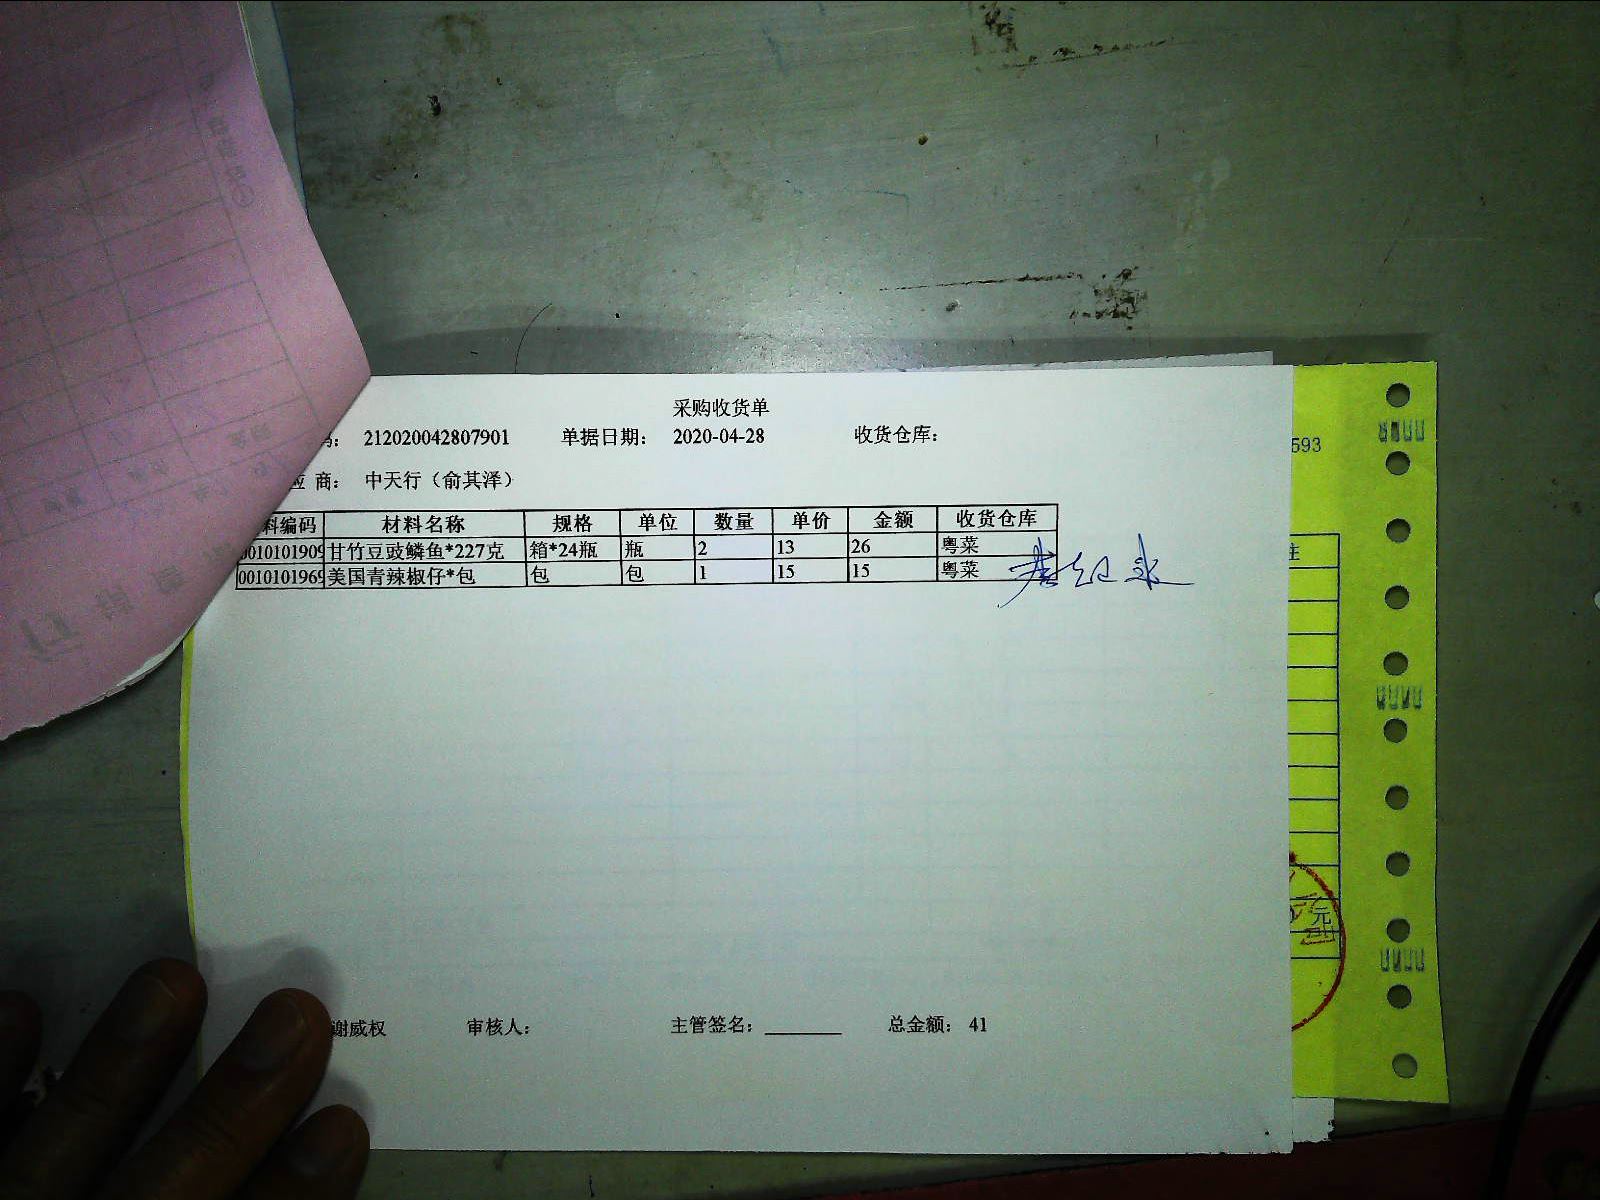 采购收货单
码： 212020042807901 单据日期： 2020-04-28 收货仓库：
593
应 商： 中天行（俞其泽）
料编码 材料名称 规格 单位 数量 单价 金额 收货仓库
0010101909 甘竹豆豉鳞鱼*227克 箱*24瓶 瓶 2 13 26 粤菜
0010101969 美国青辣椒仔*包 包 包 1 15 15 粤菜
元
谢威权 审核人： 主管签名： 总金额： 41